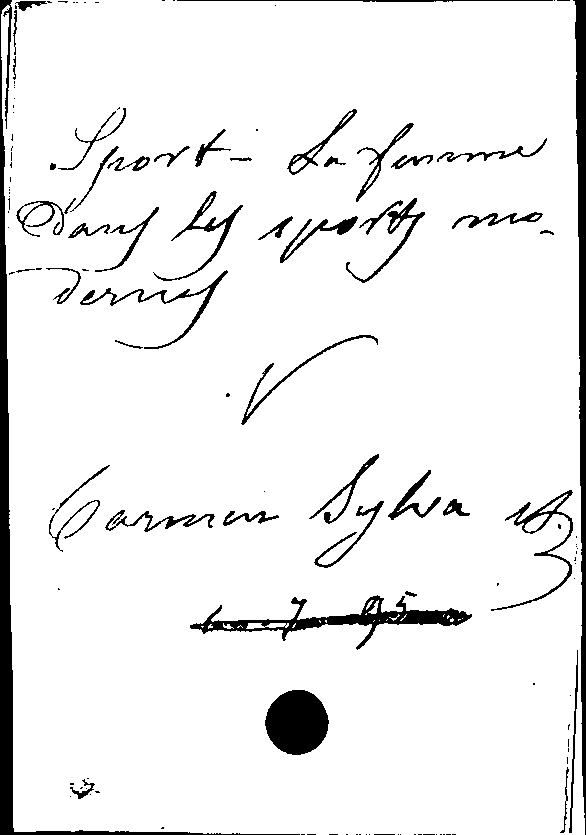 Sport - La femme
dans les sports mo-
dernes
V
Carmen Sylva